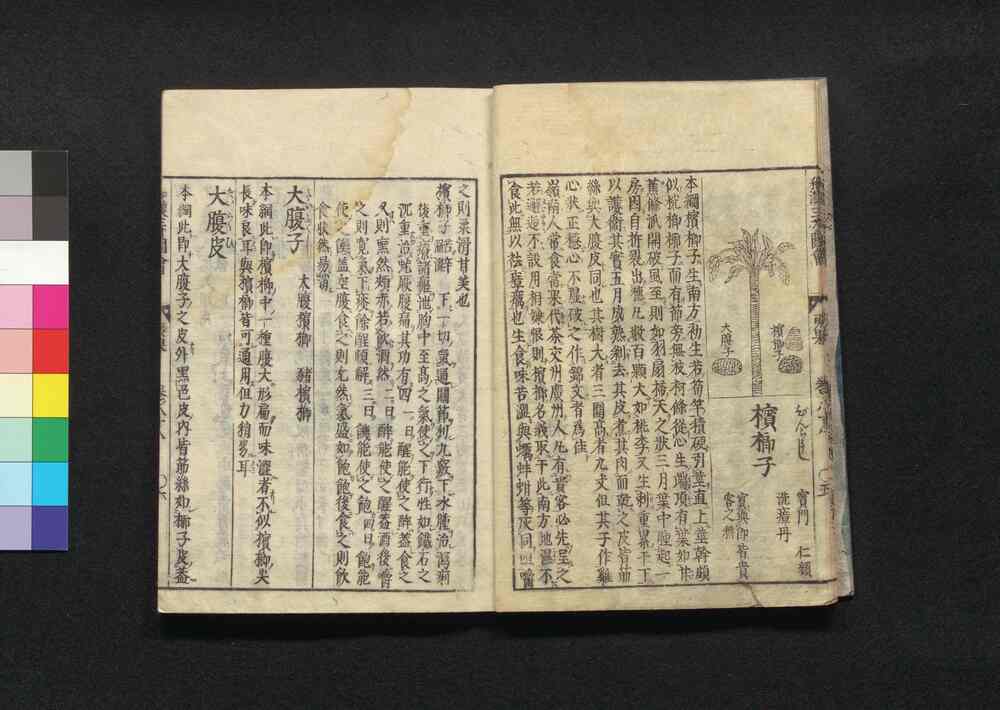 檳榔子
大腹子
檳榔子
賓門 仁頻
洗瘴丹
賓與郎皆貴
客之稱
本綱檳榔子生南方初生若筍竿積硬引莖直上莖幹頗
似桄榔椰子而有節旁無枝柯條從心生端頂有葉如甘
蕉條派開破風至則如羽扇掃天之狀三月葉中腫起一
房因自拆裂出穗凡數百顆大如桃李又生刺重累于下
以護衛其實五月成熟剝去其皮煮其肉而乾之皮皆筋
絲與大腹皮同也其樹大者三圍高者九丈但其子作雞
心狀正穩心不虛破之作錦文者爲佳
嶺南人常食當果代茶交州廣州人凡有貴客必先呈之
若邂逅不設用相嫌恨則檳榔名義取于此南方地濕不
食此無以祛瘴癘也生食味苦澀與蠣蚌蚶等灰同咀嚼
之則柔滑甘美也
檳榔子 下一切氣通關節利九竅下水腫治瀉痢
後重療諸瘧泄胸中至高之氣使之下行性如鐵石之
沉重治蚘厥腹痛其功有四一曰醒能使之醉蓋食之
久則熏然頰赤若飮酒然二曰醉能使之醒蓋酒後嚼
之則寬氣下痰餘酲頓解三曰饑能使之飽四曰飽能
使之饑蓋空腹食之則充然氣盛如飽飽後食之則飮
食快然易消
大腹子 大腹檳榔 豬檳榔
本綱此即檳榔中一種腹大形扁而味澀者不似檳榔尖
長味良耳與檳榔皆可通用但力稍劣耳
大腹皮
本綱此即大腹子之皮外黑色皮內皆筋絲如椰子皮蓋